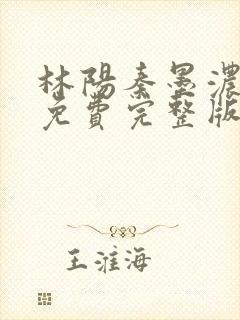 林陽秦墨濃
免費完整版
王淮海